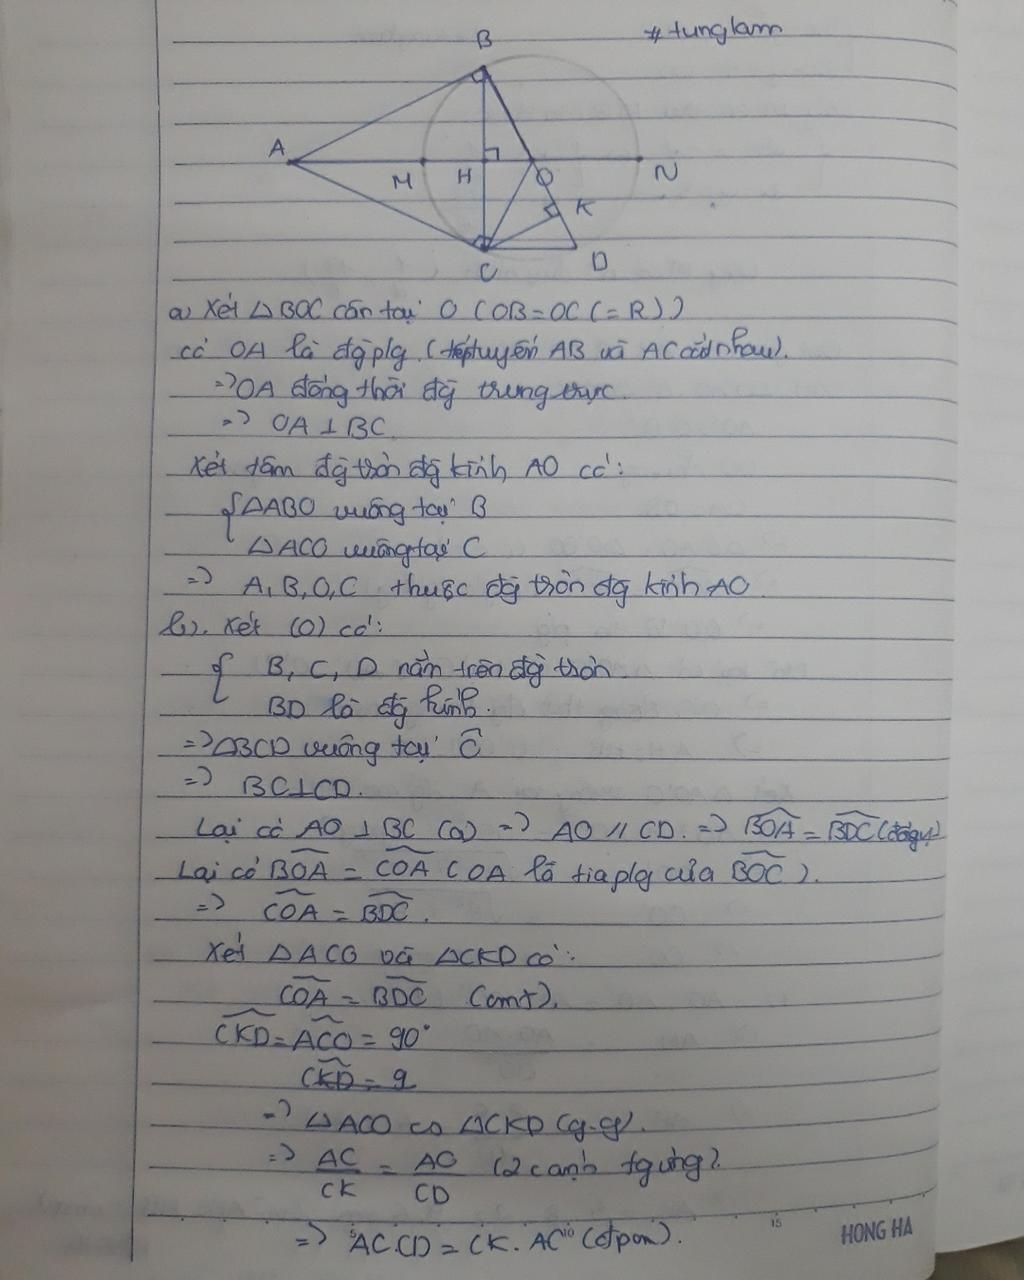 #tunglam
B
A
M H O N
K
C D
a) Xét △BOC cân tại O (OB=OC(=R))
có OA là đg plg (tiếp tuyến AB và AC cắt nhau).
=> OA đồng thời đg trung trực
=> OA ⊥ BC
Xét tâm đg tròn đg kính AO có:
{ △ABO vuông tại B
△ACO vuông tại C
=> A, B, O, C thuộc đg tròn đg kính AO
b). Xét (O) có:
{ B, C, D nằm trên đg tròn
BD là đg kính.
=> △BCD vuông tại C
=> BC⊥CD.
Lại có AO ⊥ BC (a) => AO // CD. => BOA = BDC (đồng vị)
Lại có BOA = COA (OA là tia plg của BOC).
=> COA = BDC.
Xét △ACO và △CKD có:
COA = BDC (cmt).
CKD = ACO = 90°
CKD = 9
=> △ACO ᔕ △CKD (g-g).
=> AC/CK = AO/CD (2 cạnh tg ứng).
=> AC.CD = CK.AO (đpcm).
5 10 15
HONG HA